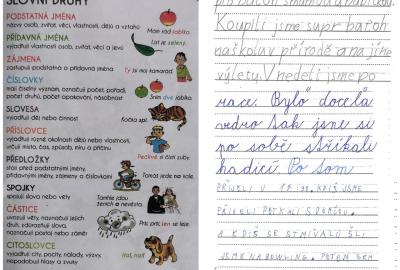 SLOVNÍ DRUHY
PODSTATNÁ JMÉNA
názvy osob, zvířat, věcí, vlastností, dějů a vztahů
Mám rád jablka.
PŘÍDAVNÁ JMÉNA
vyjadřují vlastnosti osob, zvířat, věcí a jevů
List je zelený.
ZÁJMENA
zastupují podstatná a přídavná jména
Ty jsi má kamarád.
ČÍSLOVKY
mají číselný význam, označují počet, pořadí,
počet druhů, počet opakování, násobnost
Sním dvě jablka.
SLOVESA
vyjadřují děj nebo činnost
Kočka spí.
PŘÍSLOVCE
vyjadřují různé okolnosti dějů nebo vlastností,
určují místo, čas, způsob, míru a příčinu
Pečlivě si čistí zuby.
PŘEDLOŽKY
stojí před podstatnými jmény,
přídavnými jmény, zájmeny a číslovkami
Tomáš jede na kole.
SPOJKY
spojují slova nebo věty
Tamhle jdou
ženich a nevěsta.
ČÁSTICE
uvozují věty, naznačují jejich
druh, zdůrazňují slova,
naznačují postoj nebo záměr
Prší, prší, jen se leje.
CITOSLOVCE
vyjadřují city, pocity, nálady, výzvy,
napodobují hlasy a zvuky
Haf, haf!
Koupili jsme supr baťoh
na školu v přírodě a na jiné
výlety. V nedeli jsme po
race. Bylo docela
vedro tak jsme si
po sobě stříkali
hadicí. Po tom
PŘIJELI V 18:00. KDIŠ JSME
PŘIJELI POTKALI S
A KDIŠ SE STMÍVALO ŠLI
JSME NA BOWLING. POTOM SEM